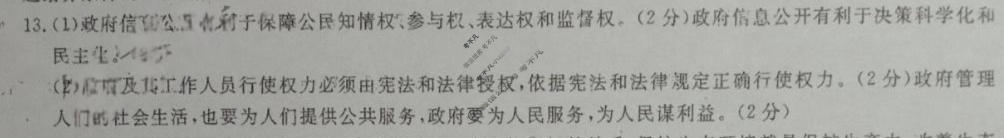 13.(1)政府信息公开有利于保障公民知情权、参与权、表达权和监督权。(2分)政府信息公开有利于决策科学化和
民主化。
(2)政府及其工作人员行使权力必须由宪法和法律授权,依据宪法和法律规定正确行使权力。(2分)政府管理
人们的社会生活,也要为人们提供公共服务,政府要为人民服务,为人民谋利益。(2分)